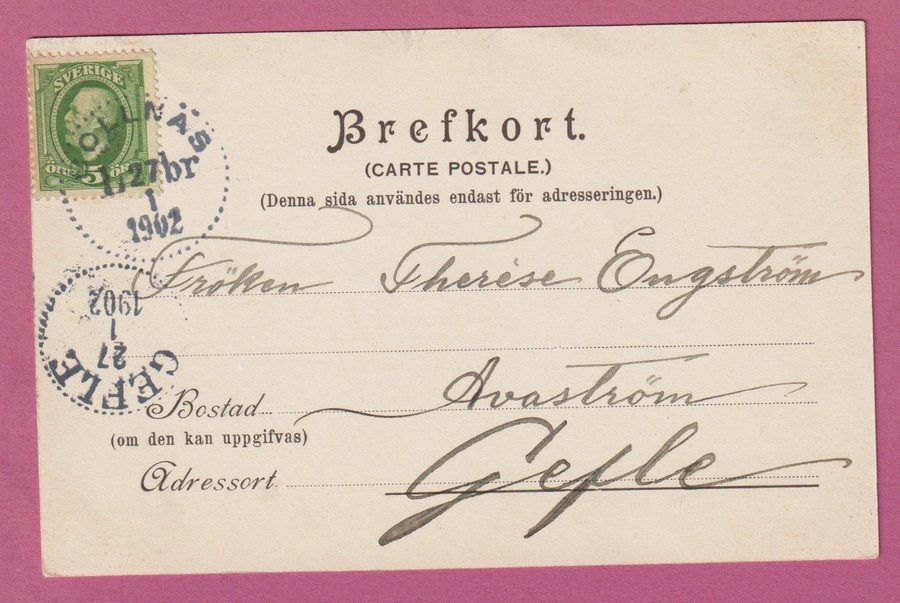 SVERIGE
ÖRE 5 ÖRE
BOLLNÄS
L.27br
1
1902
Brefkort.
(CARTE POSTALE.)
(Denna sida användes endast för adresseringen.)
Fröken Therése Engström
GEFLE
27
1
1902
Bostad Avaström
(om den kan uppgifvas)
Adressort Gefle